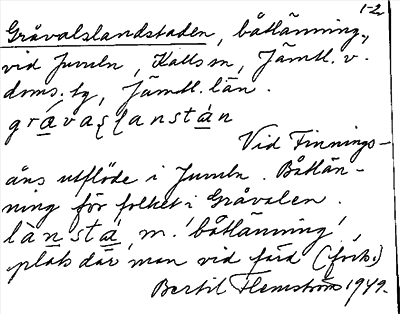 1-2
Gråvalslandstaden, båtlänning,
vid Juveln, Kalls sn, Jämtl. v.
doms. tg, Jämtl. län.
grávaslanstán
Vid Finnings-
åns utflöde i Juveln. Båtlän-
ning för folket i Gråvalen.
lànstá, m. 'båtlänning',
plats där man vid färd (förk.)
Bertil Flemström 1949.